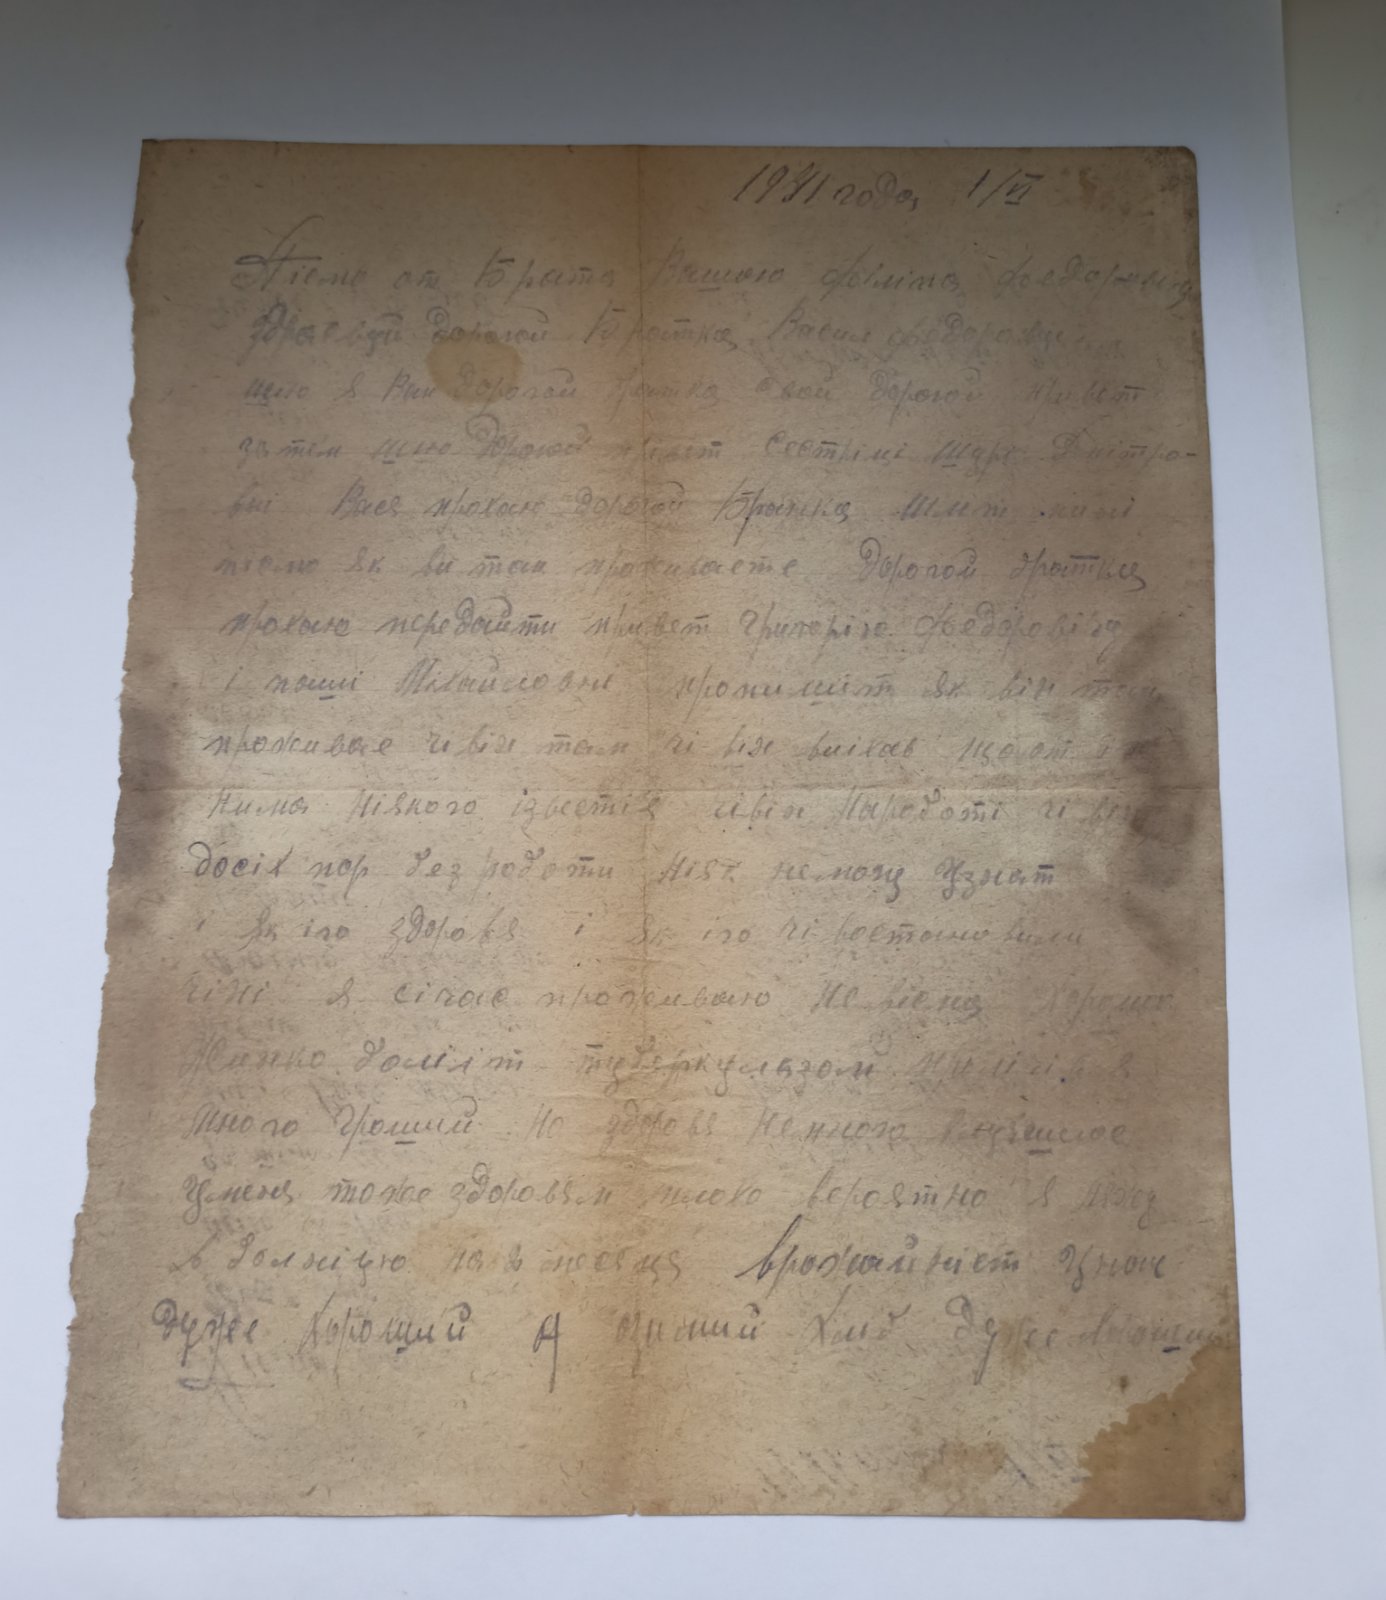 1941 года 1/VI
Пісмо от Брата Вашого Філіпа Федоровіча
Здраствуй дорогой Братка Васил Федоровіч
шлю я Вам дорогой братка свой дорогой привет
затем шлю дорогой привіт Сестріці Шурі Дмітро-
вні Вася прохаю дорогой Братка шліт мині
писмо як ви там проживаєте дорогой братка
прохаю передайти привет Григорію Федоровічу
і Михайловни пропишіт як він там
проживае чі він там чі він виіхав що от іго
нима ніякого ізвестія чі він на роботі чі він
досіх пор без роботи ніяк не можу узнат
і як іго здоровя і як іго чі востановили
чі ні я січас проживаю не вісма хорошо
Жинка боліїт туберкульозом
много грошей но здоровя немного
У меня тоже здоровям плохо вероятно я ляжу
в болніцю на 2 месеця врожайніст у нас
дуже хороший А озимий хліб дуже хороший